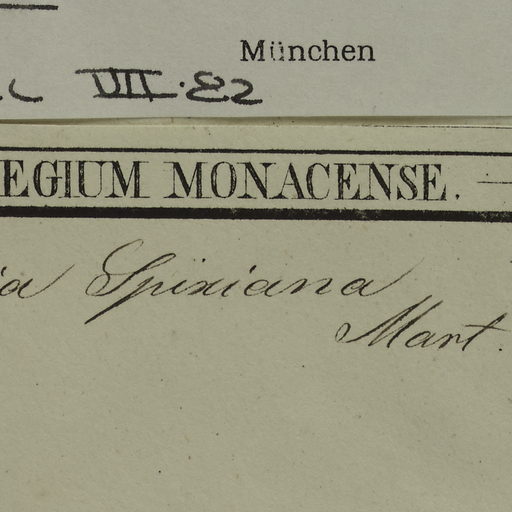 München
VII.82
EGIUM MONACENSE.
ia Spixiana
Mart.